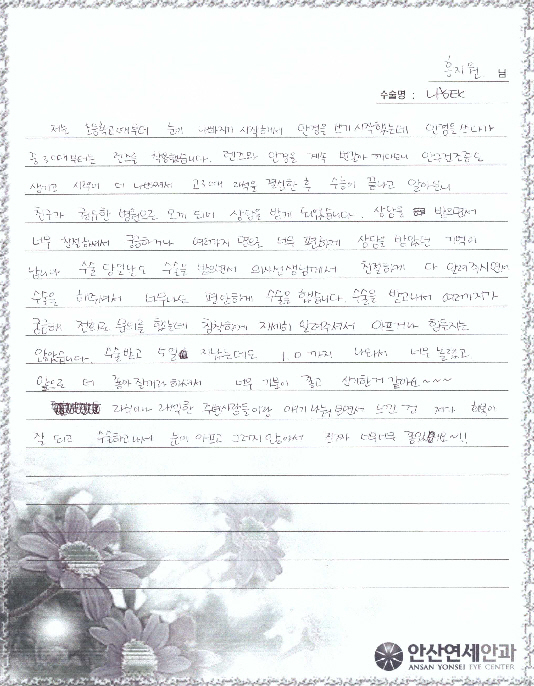 홍지원 님
수술명 : LASEK
저는 초등학교때부터 눈이 나빠지기 시작해서 안경을 쓰기 시작했는데 안경을 쓰다가
중3때부터는 렌즈를 착용했습니다. 렌즈와 안경을 계속 번갈아 끼다보니 안구건조증도
생기고 시력이 더 나빠져서 고3때 라섹을 결심한 후 수능이 끝나고 알아보니
친구가 했던 병원으로 오게 되어 상담을 받게 되었습니다. 상담을 받으면서
너무 친절하셔서 궁금하거나 여러가지 면으로 너무 편하게 상담을 받았던 기억이
납니다 수술 당일날도 수술을 받으면서 의사선생님께서 친절하게 다 알려주시면서
수술을 해주셔서 너무나도 편안하게 수술을 했습니다. 수술을 받고나서 여러가지가
궁금해 전화로 문의를 했는데 침착하게 자세히 알려주셔서 아프거나 힘들지는
않았습니다. 수술받고 5일 지났는데도 1.0 까지 나와서 너무 놀랐고
앞으로 더 좋아질거라 하셔서 너무 기분이 좋고 신기한거 같아요~~~~
라식이나 라섹한 주변사람들이랑 얘기 나눠보면서 느낀 건 제가 회복이
잘 되고 수술하고나서 눈이 아프고 그러지 않아서 진짜 너무너무 좋았어요~!!
안산연세안과
ANSAN YONSEI EYE CENTER